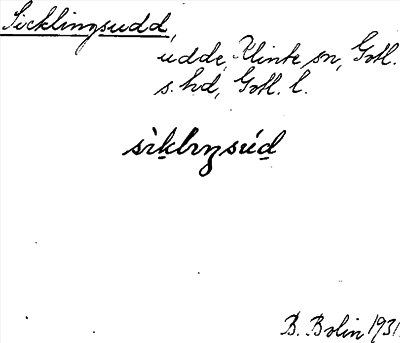 Sicklingsudd,
udde, Klinte sn, Gotl.
s. hd, Gotl. l.
sìklıŋsúd
B. Bolin 1931.